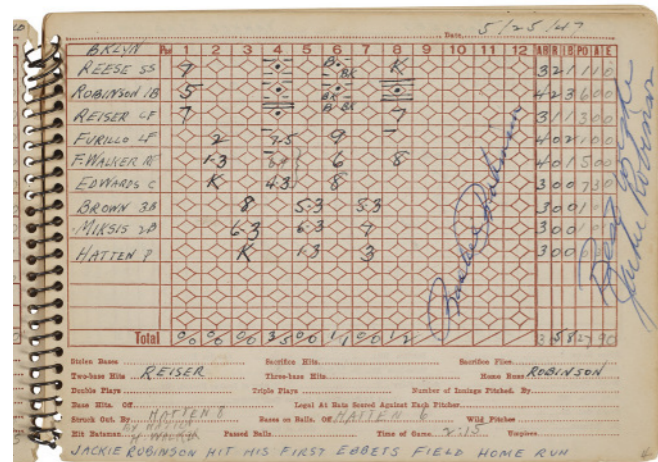 Date 5/25/47
BKLYN Pos 1 2 3 4 5 6 7 8 9 10 11 12 AB R 1B PO A E
REESE SS 7 B BK K 3 2 1 1 1 0
ROBINSON 1B 5 BK 4 2 3 6 0 0
REISER CF 7 B BK 7 3 1 1 3 0 0
FURILLO LF 2 9 4 0 2 1 0 0
F. WALKER RF 1-3 6 8 4 0 1 5 0 0
EDWARDS C K 4-3 8 3 0 0 7 3 0
BROWN 3B 8 5-3 5-3 3 0 0 1
MIKSIS 2B 6-3 6-3 7 3 0 0
HATTEN P K 1-3 3 3 0 0
Jackie Robinson
Best Wishes
Jackie Robinson
Total 0/0 0/0 0/0 3/5 0/0 1/1 0/0 1/2
Stolen Bases Sacrifice Hits Sacrifice Flies
Two-base Hits REISER Three-base Hits Home Runs ROBINSON
Double Plays Triple Plays Number of Innings Pitched. By
Base Hits. Off Legal At Bats Scored Against Each Pitcher
Struck Out. By HATTEN 8 Bases on Balls. Off HATTEN 6 Wild Pitches
Hit Batsman BY HATTEN H WALKER Passed Balls Time of Game 2:15 Umpires
JACKIE ROBINSON HIT HIS FIRST EBBETS FIELD HOME RUN